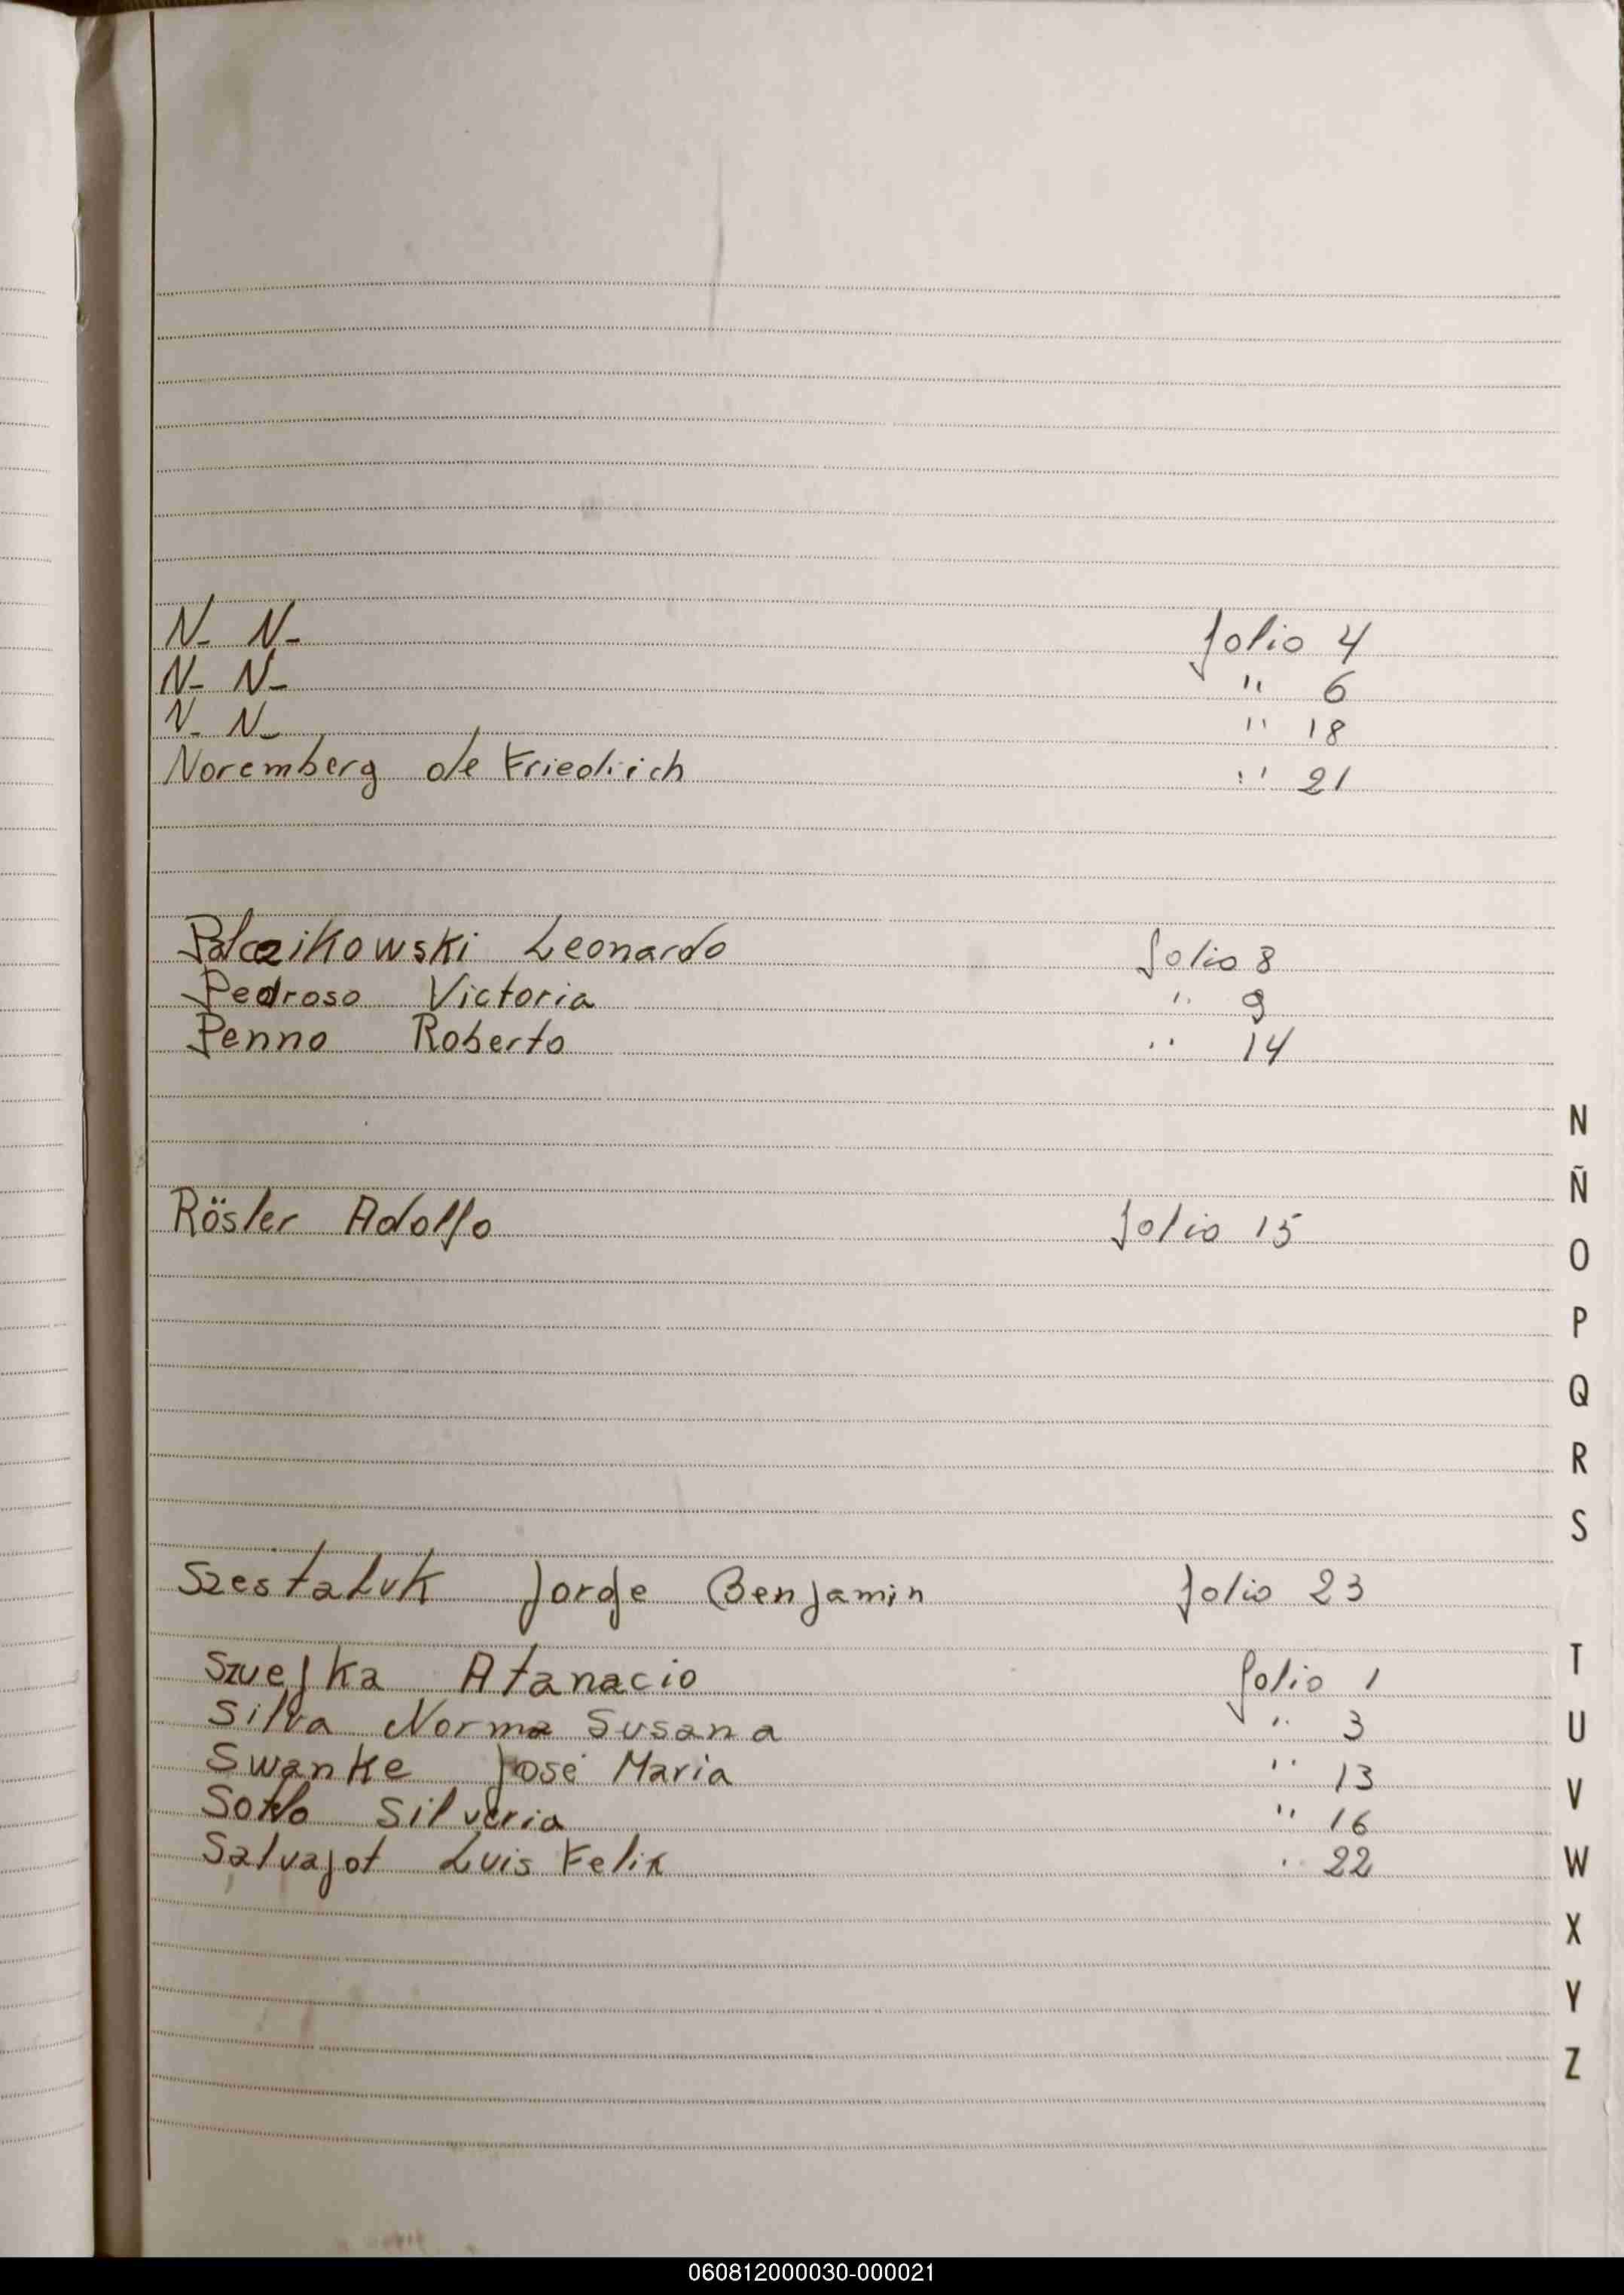 N- N- folio 4
N- N- " 6
N- N- " 18
Noremberg de Friedrich " 21
Palczikowski Leonardo folio 8
Pedroso Victoria " 9
Penno Roberto " 14
Rösler Adolfo folio 15
Szestaluk Jorge Benjamin folio 23
Szuejka Atanacio folio 1
Silva Norma Susana " 3
Swanke José Maria " 13
Sotelo Silveria " 16
Salvajot Luis Felix " 22
N
Ñ
O
P
Q
R
S
T
U
V
W
X
Y
Z
060812000030-000021